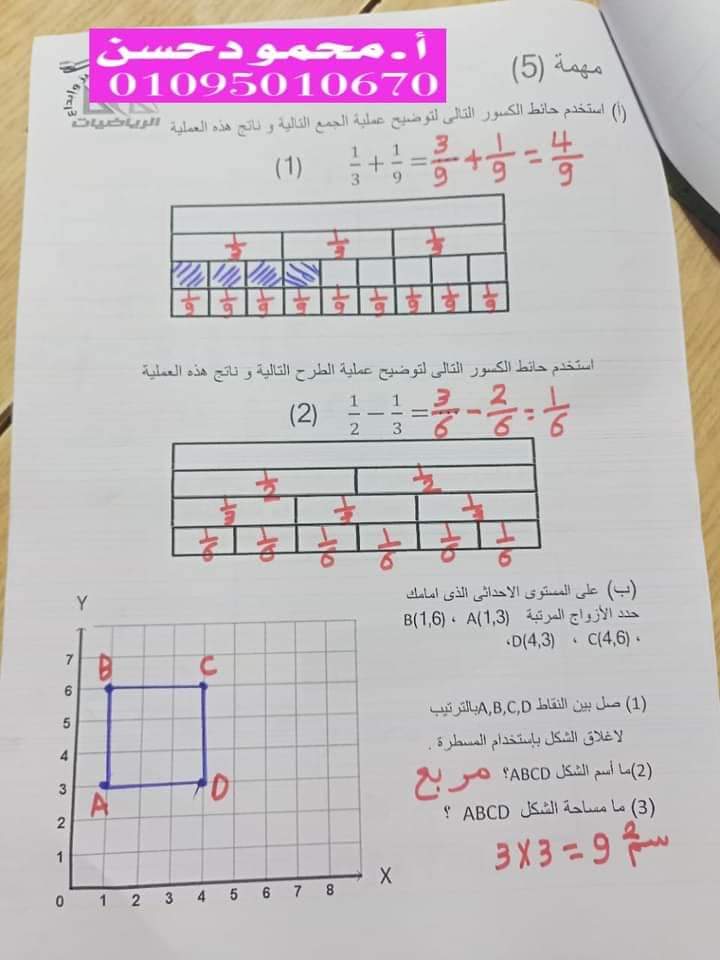 أ.محمودحسن
01095010670
مهمة (5)
الرياضيات
(أ) استخدم حائط الكسور التالى لتوضيح عملية الجمع التالية و ناتج هذه العملية
(1) 1/3 + 1/9 = 3/9 + 1/9 = 4/9
1/3 1/3 1/3
1/9 1/9 1/9 1/9 1/9 1/9 1/9 1/9 1/9
استخدم حائط الكسور التالى لتوضيح عملية الطرح التالية و ناتج هذه العملية
(2) 1/2 − 1/3 = 3/6 − 2/6 = 1/6
1/2 1/2
1/3 1/3 1/3
1/6 1/6 1/6 1/6 1/6 1/6
(ب) على المستوى الاحداثى الذى امامك
حدد الأزواج المرتبة A(1,3) ، B(1,6)
، C(4,6) ، D(4,3)،
(1) صل بين النقاط A,B,C,D بالترتيب
لاغلاق الشكل بإستخدام المسطرة .
(2) ما أسم الشكل ABCD؟ مربع
(3) ما مساحة الشكل ABCD ؟
3 X 3 = 9 سم2
Y
7
6
5
4
3
2
1
0 1 2 3 4 5 6 7 8 X
B C
A D